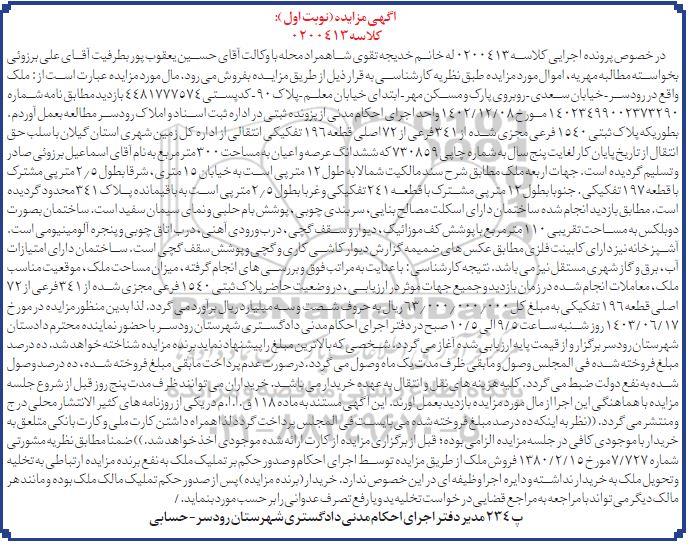 آگهی مزایده (نوبت اول):
کلاسه ۰۲۰۰۴۱۳
در خصوص پرونده اجرایی کلاسه ۰۲۰۰۴۱۳ له خانم خدیجه تقوی شاهمراد محله با وکالت آقای حسین یعقوب پور بطرفیت آقای علی برزوئی
بخواسته مطالبه مهریه، اموال مورد مزایده طبق نظریه کارشناسی به قرار ذیل از طریق مزایده بفروش می رود. مال مورد مزایده عبارت است از: ملک
واقع در رودسر-خیابان سعدی-روبروی پارک و مسکن مهر-ابتدای خیابان معلم-پلاک ۹۰-کدپستی ۴۴۸۱۷۷۷۵۷۴ بازدید مطابق نامه شماره
۱۴۰۲۳۴۹۹۰۰۲۳۷۳۲۹۰ مورخ ۱۴۰۲/۱۲/۰۸ واحد اجرای احکام مدنی از پرونده ثبتی در اداره ثبت اسناد و املاک رودسر مطالعه بعمل آوردم.
بطوریکه پلاک ثبتی ۱۵۴۰ فرعی مجزی شده از ۳۴۱ فرعی از ۷۲ اصلی قطعه ۱۹۶ تفکیکی انتقالی از اداره کل زمین شهری استان گیلان با سلب حق
انتقال از تاریخ پایان کار لغایت پنج سال به شماره چاپی ۷۳۰۸۵۹ که ششدانگ عرصه و اعیان به مساحت ۳۰۰ متر مربع به نام آقای اسماعیل برزوئی صادر
و تسلیم گردیده است. جهات اربعه ملک مطابق شرح سند مالکیت شمالا به طول ۱۲ متر پی است به خیابان ۱۵ متری، شرقا بطول ۲/۵ متر پی مشترک
با قطعه ۱۹۷ تفکیکی. جنوبا بطول ۱۲ متر پی مشترک با قطعه ۲۴۱ تفکیکی و غربا بطول ۲/۵ متر پی است به باقیمانده پلاک ۳۴۱ محدود گردیده
است. مطابق بازدید انجام شده ساختمان دارای اسکلت مصالح بنایی، سربندی چوبی، پوشش بام حلبی و نمای سیمان سفید است. ساختمان بصورت
دوبلکس به مساحت تقریبی ۱۱۰ متر مربع با پوشش کف موزائیک، دیوار و سقف گچی، درب ورودی آهنی، درب اتاق چوبی و پنجره آلومینیومی است.
آشپزخانه نیز دارای کابینت فلزی مطابق عکس های ضمیمه گزارش دیوار کاشی کاری و گچی و پوشش سقف گچی است. ساختمان دارای امتیازات
آب، برق و گاز شهری مستقل نیز می باشد. نتیجه کارشناسی: با عنایت به مراتب فوق و بررسی های انجام گرفته، میزان مساحت ملک، موقعیت مناسب
ملک، معاملات انجام شده در زمان بازدید و جمیع جهات موثر در ارزیابی، در وضعیت حاضر پلاک ثبتی ۱۵۴۰ فرعی مجزی شده از ۳۴۱ فرعی از ۷۲
اصلی قطعه ۱۹۶ تفکیکی به مبلغ کل ۶۳/۰۰۰/۰۰۰/۰۰۰ ریال به حروف شصت و سه میلیارد ریال برآورد می گردد. لذا بدین منظور مزایده در مورخ
۱۴۰۳/۰۶/۱۷ روز شنبه ساعت ۹/۵ الی ۱۰/۵ صبح در دفتر اجرای احکام مدنی دادگستری شهرستان رودسر با حضور نماینده محترم دادستان
شهرستان رودسر برگزار و از قیمت پایه ارزیابی شده آغاز می گردد، شخصی که بالاترین مبلغ را پیشنهاد نماید برنده مزایده شناخته خواهد شد. ده درصد
مبلغ فروخته شده فی المجلس وصول و مابقی ظرف مدت یک ماه وصول می گردد. در صورت عدم پرداخت مابقی مبلغ فروخته شده، ده درصد وصول
شده به نفع دولت ضبط می گردد. کلیه هزینه های نقل و انتقال به عهده خریدار می باشد. خریداران می توانند ظرف مدت پنج روز قبل از شروع جلسه
مزایده با هماهنگی این اجرا از مال مورد مزایده بازدید بعمل آورند. این آگهی مستند به ماده ۱۱۸ ق.ا.ا.م در یکی از روزنامه های کثیر الانتشار محلی درج
و منتشر می گردد. ((نظر به اینکه ده درصد مبلغ فروخته شده می بایست فی المجلس پرداخت گردد لذا همراه داشتن کارت ملی و کارت بانکی متلعق به
خریدار با موجودی کافی در جلسه مزایده الزامی بوده؛ قبل از برگزاری مزایده از کارت ارائه شده موجودی اخذ خواهد شد.)) ضمنا مطابق نظریه مشورتی
شماره ۷/۷۲۷ مورخ ۱۳۸۰/۲/۱۵ فروش ملک از طریق مزایده توسط اجرای احکام و صدور حکم بر تملیک ملک به نفع برنده مزایده ارتباطی به تخلیه
و تحویل ملک به خریدار نداشته و دایره اجرا وظیفه ای در این خصوص ندارد. خریدار (برنده مزایده) پس از صدور حکم تملیک مالک ملک بوده و مانند هر
مالک دیگر می تواند با مراجعه به مراجع قضایی درخواست تخلیه ید و یا رفع تصرف عدوانی را بر حسب مورد بنماید./
پ ۲۳۴ مدیر دفتر اجرای احکام مدنی دادگستری شهرستان رودسر-حسابی